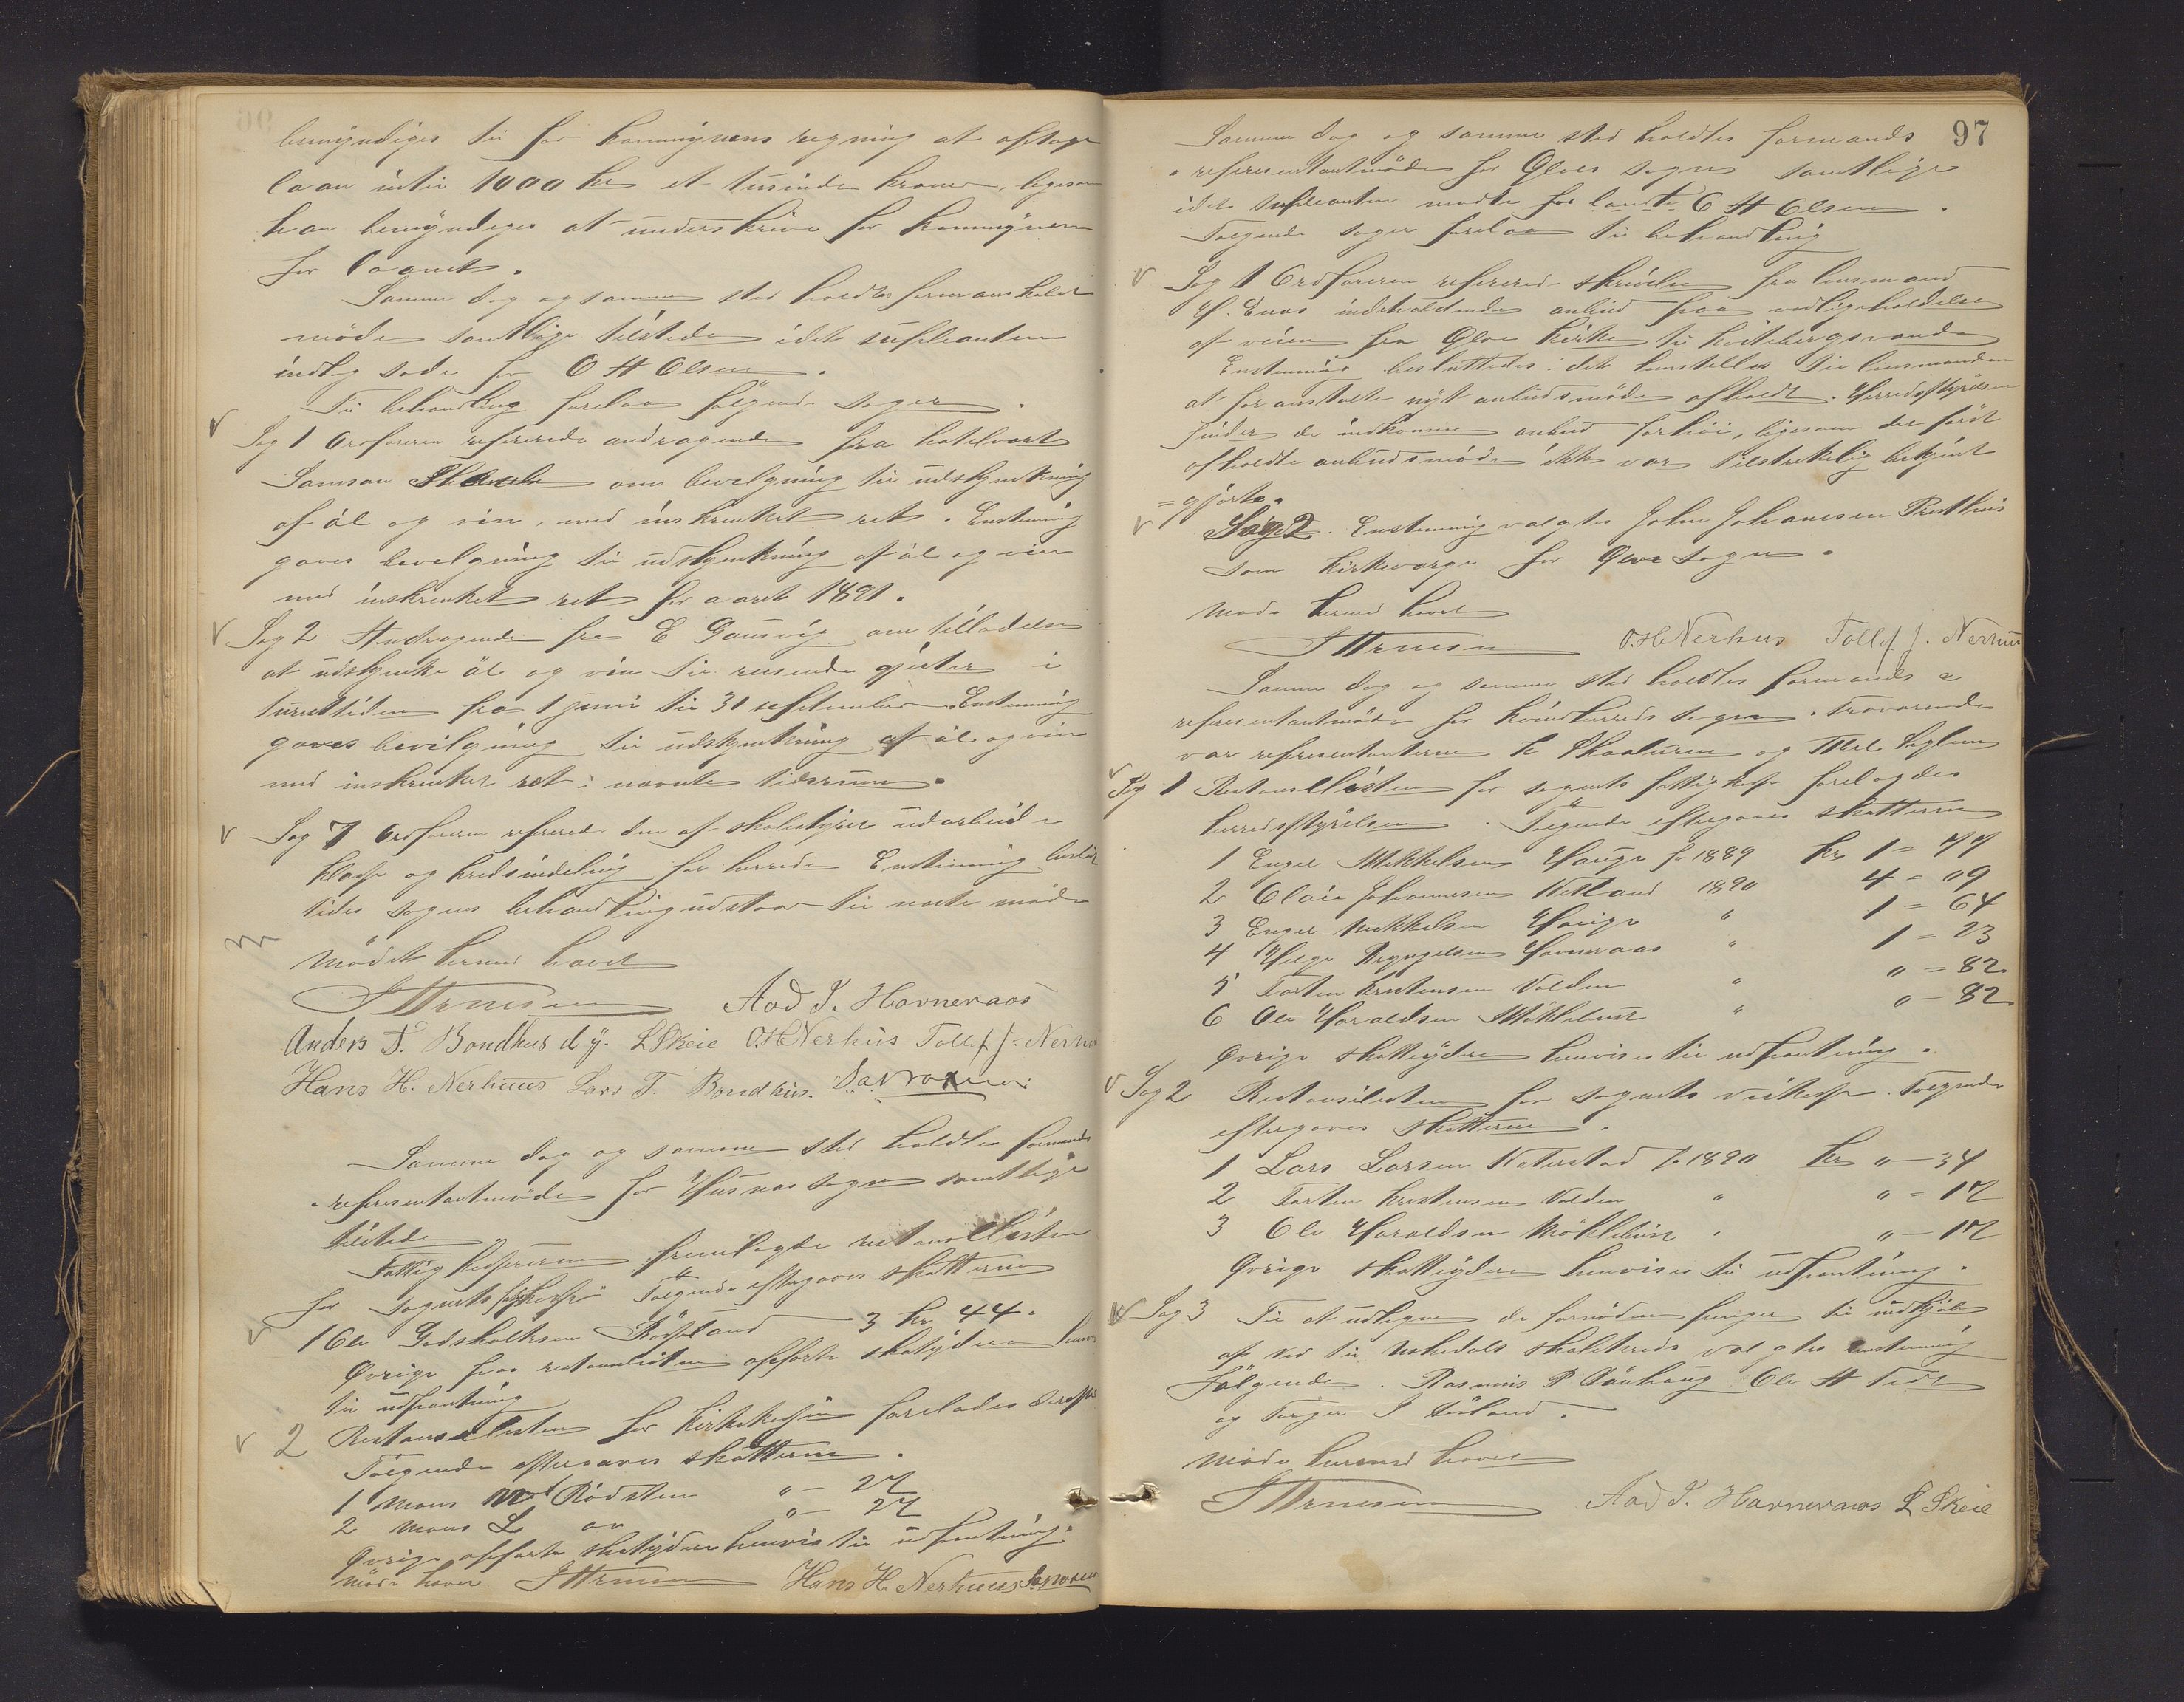 bemyndiges til for kommynens regning at optage
laan intil 1000 kr et tusinde kroner, ligesom
han bemyndiges at underskrive for kommynen
for laanet.
Samme dag og samme sted holdtes formanskabs
møde samtlige tilstede idet supleanten
indtog sæde for O H Olsen.
Til behandling forelaa følgende sager.
Sag 1 Ordføreren refererede andragende fra hotelvært
Samson om bevilgning til udskjenkning
af øl og vin, med inskrenket ret. Enstemmig
gaves bevilgning til udskjenkning af øl og vin
med inskrenket ret for aaret 1891.
Sag 2 Andragende fra E Gausvig om tilladelse
at udskjenke øl og vin til reisende gjester i
turisttiden fra 1 juni til 31 september. Enstemmig
gaves bevilgning til udskjenkning af øl og vin
med inskrenket ret i nævnte tidsrum.
Sag 7 Ordføreren refererede den af skolestyret udarbeid=
klasse og kredsindeling for herredet Enstemmig beslut
tedes sagens behandling udstaar til næste møde
Mødet hermed hævet
Aad J. Havneraas
Anders T. Bondhus d.y. L Skeie O.H Nerhus Tollef J. Nerhus
Hans H. Nerhuus Lars T. Bondhus.
Samme dag og samme sted holdtes formands
& representantmøde for Husnæs sogn samtlige
tilstede
Fattigkassereren fremlagde restanselisten
for sognets Følgende eftergaves skatterne
1 Ole Godskalksen 3 kr 44.
Øvrige paa restanselisten opførte skatydere henv
til udpantning
2 Restanselisten for kirkekassen forelaaes
Følgende eftergaves skatterne.
1 Mons Rødsten " - 27
2 Mons L " - 27
Øvrige opførte skatydere henvis til udpantning.
Møde hævet Hans H. Nerhuus
97
Samme dag og samme sted holdtes formands
& representantmøde for Ølve sogn samtlige
idet supleanten mødte for O H Olsen.
Følgende sager forelaa til behandling
Sag 1 Ordføreren refererede skrivelse fra lensmand
H. Enæs indeholdende anbud paa vedligeholdelse
af veien fra Ølve kirke til
Enstemmig besluttedes: det henstilles til lensmanden
at foranstalte nyt anbudsmøde afholdt. Herredsstyrelsen
finder de indkomne anbud forhøi, ligesom det først
afholdte anbudsmøde ikke var tilstrekelig bekjent
=gjort.
Sag 2. Enstemmig valgtes John Johanesen Presthus
som kirkeværge for Ølve sogn.
Møde hermed hævet
O.H Nerhus Tollef J. Nerhus
Samme dag og samme sted holdtes formands &
representantmøde for kvindherreds sogn. Fraværende
var representanterne
Sag 1 Restanselisten for sognets fattigkasse forelagdes
herredsstyrelsen. Følgende eftergaves skatterne
1 Engel Mikkelsen Hauge f 1889 kr 1 = 77
2 Johannesen 1890 4 = 09
3 Engel Mikkelsen Hauge " 1 = 64
4 Helge " 1 = 23
5 Torten Kristensen Valden " " = 82
6 Ole Haraldsen Mökleburst " " - 82
Øvrige skatteydere henvises til udpantning.
Sag 2 Restanselisten for sognets veikasse. Følgende
eftergaves skatterne.
1 Lars Larsen f 1890 kr " - 34
2 Torten Kristensen Valden " " = 17
3 Ole Haraldsen Mökleburst " " - 17
Øvrige skatteydere henvises til udpantning.
Sag 3 Til at udligne de fornødne penger til indkjøb
af ved til Uskedals skolekreds valgtes enstemmig
følgende. Rasmus P Ole H
og Torger J
Møde hermed hævet
Aad J. Havneraas L Skeie